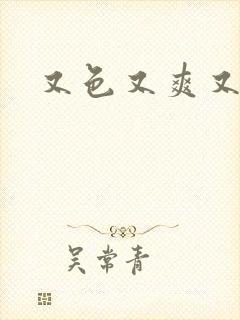 又色又爽又
吴常青